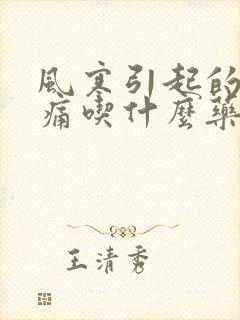 風寒引起的
痛喫什麼藥
王清秀